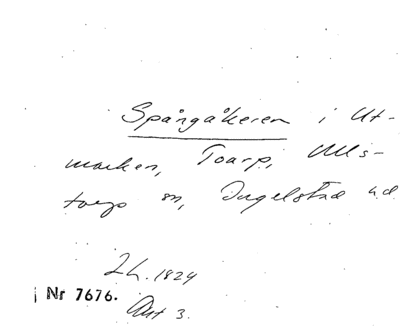 Spångåkeren i Ut-
marken, Toarp, Ulls-
torps sn, Ingelstad hd
Lh. 1824
Nr 7676.
Akt 3.